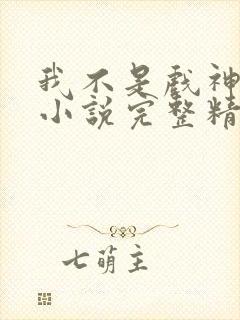 我不是戏神
小说完整精
七萌主